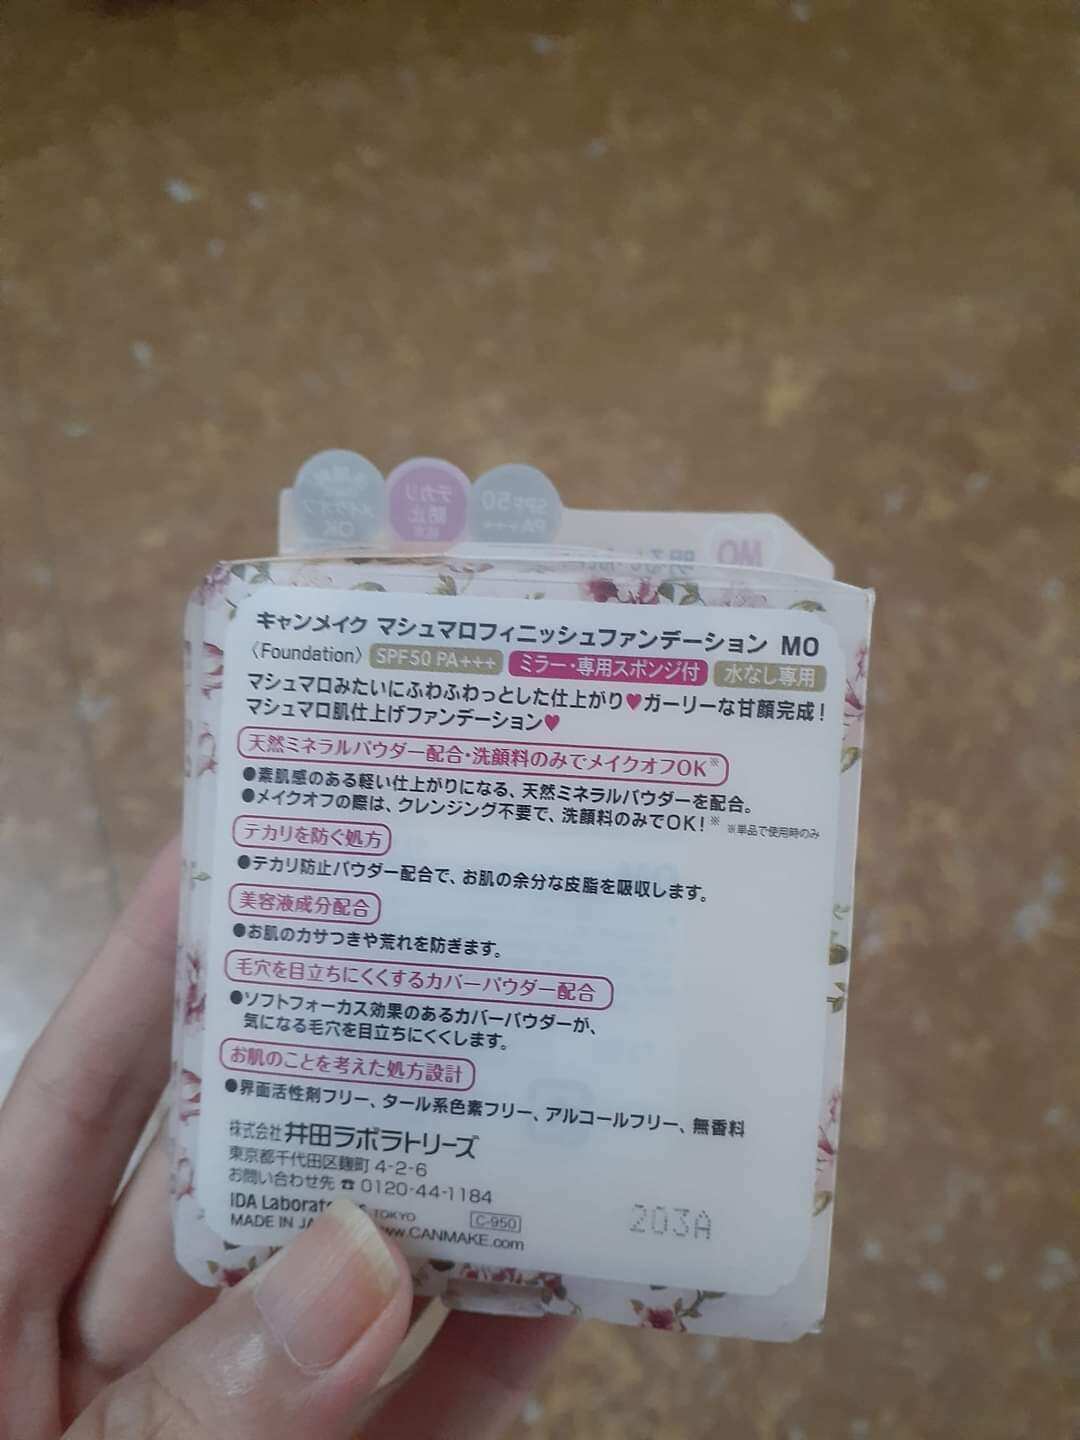 テカリ
防止
SPF50
PA+++
MO
メイクオフ
OK
キャンメイク マシュマロフィニッシュファンデーション MO
〈Foundation〉 SPF50 PA+++ ミラー・専用スポンジ付 水なし専用
マシュマロみたいにふわふわっとした仕上がり♥ガーリーな甘顔完成!
マシュマロ肌仕上げファンデーション♥
天然ミネラルパウダー配合・洗顔料のみでメイクオフOK※
●素肌感のある軽い仕上がりになる、天然ミネラルパウダーを配合。
●メイクオフの際は、クレンジング不要で、洗顔料のみでOK!※ ※単品で使用時のみ
テカリを防ぐ処方
●テカリ防止パウダー配合で、お肌の余分な皮脂を吸収します。
美容液成分配合
●お肌のカサつきや荒れを防ぎます。
毛穴を目立ちにくくするカバーパウダー配合
●ソフトフォーカス効果のあるカバーパウダーが、
気になる毛穴を目立ちにくくします。
お肌のことを考えた処方設計
●界面活性剤フリー、タール系色素フリー、アルコールフリー、無香料
株式会社 井田ラボラトリーズ
東京都千代田区麹町 4-2-6
お問い合わせ先 ☎ 0120-44-1184
IDA TOKYO C-950
MADE IN www.CANMAKE.com
203A